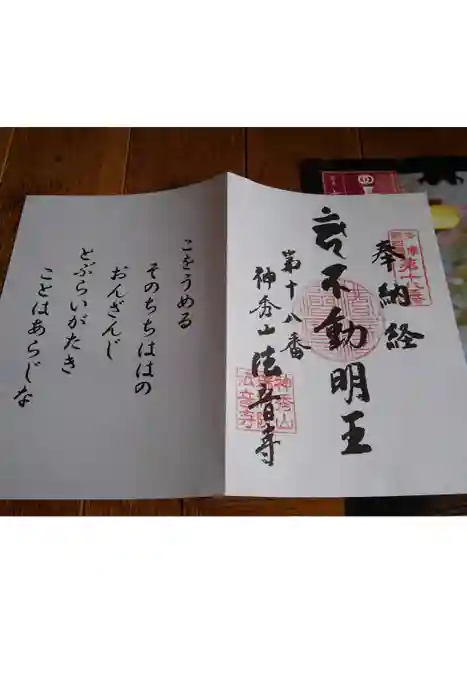 奉納経
不動明王
第十八番
神秀山法音寺
第十八番
神秀山
法音寺
こをうめる
そのちちははの
おんざんじ
とぶらいがたき
ことはあらじな